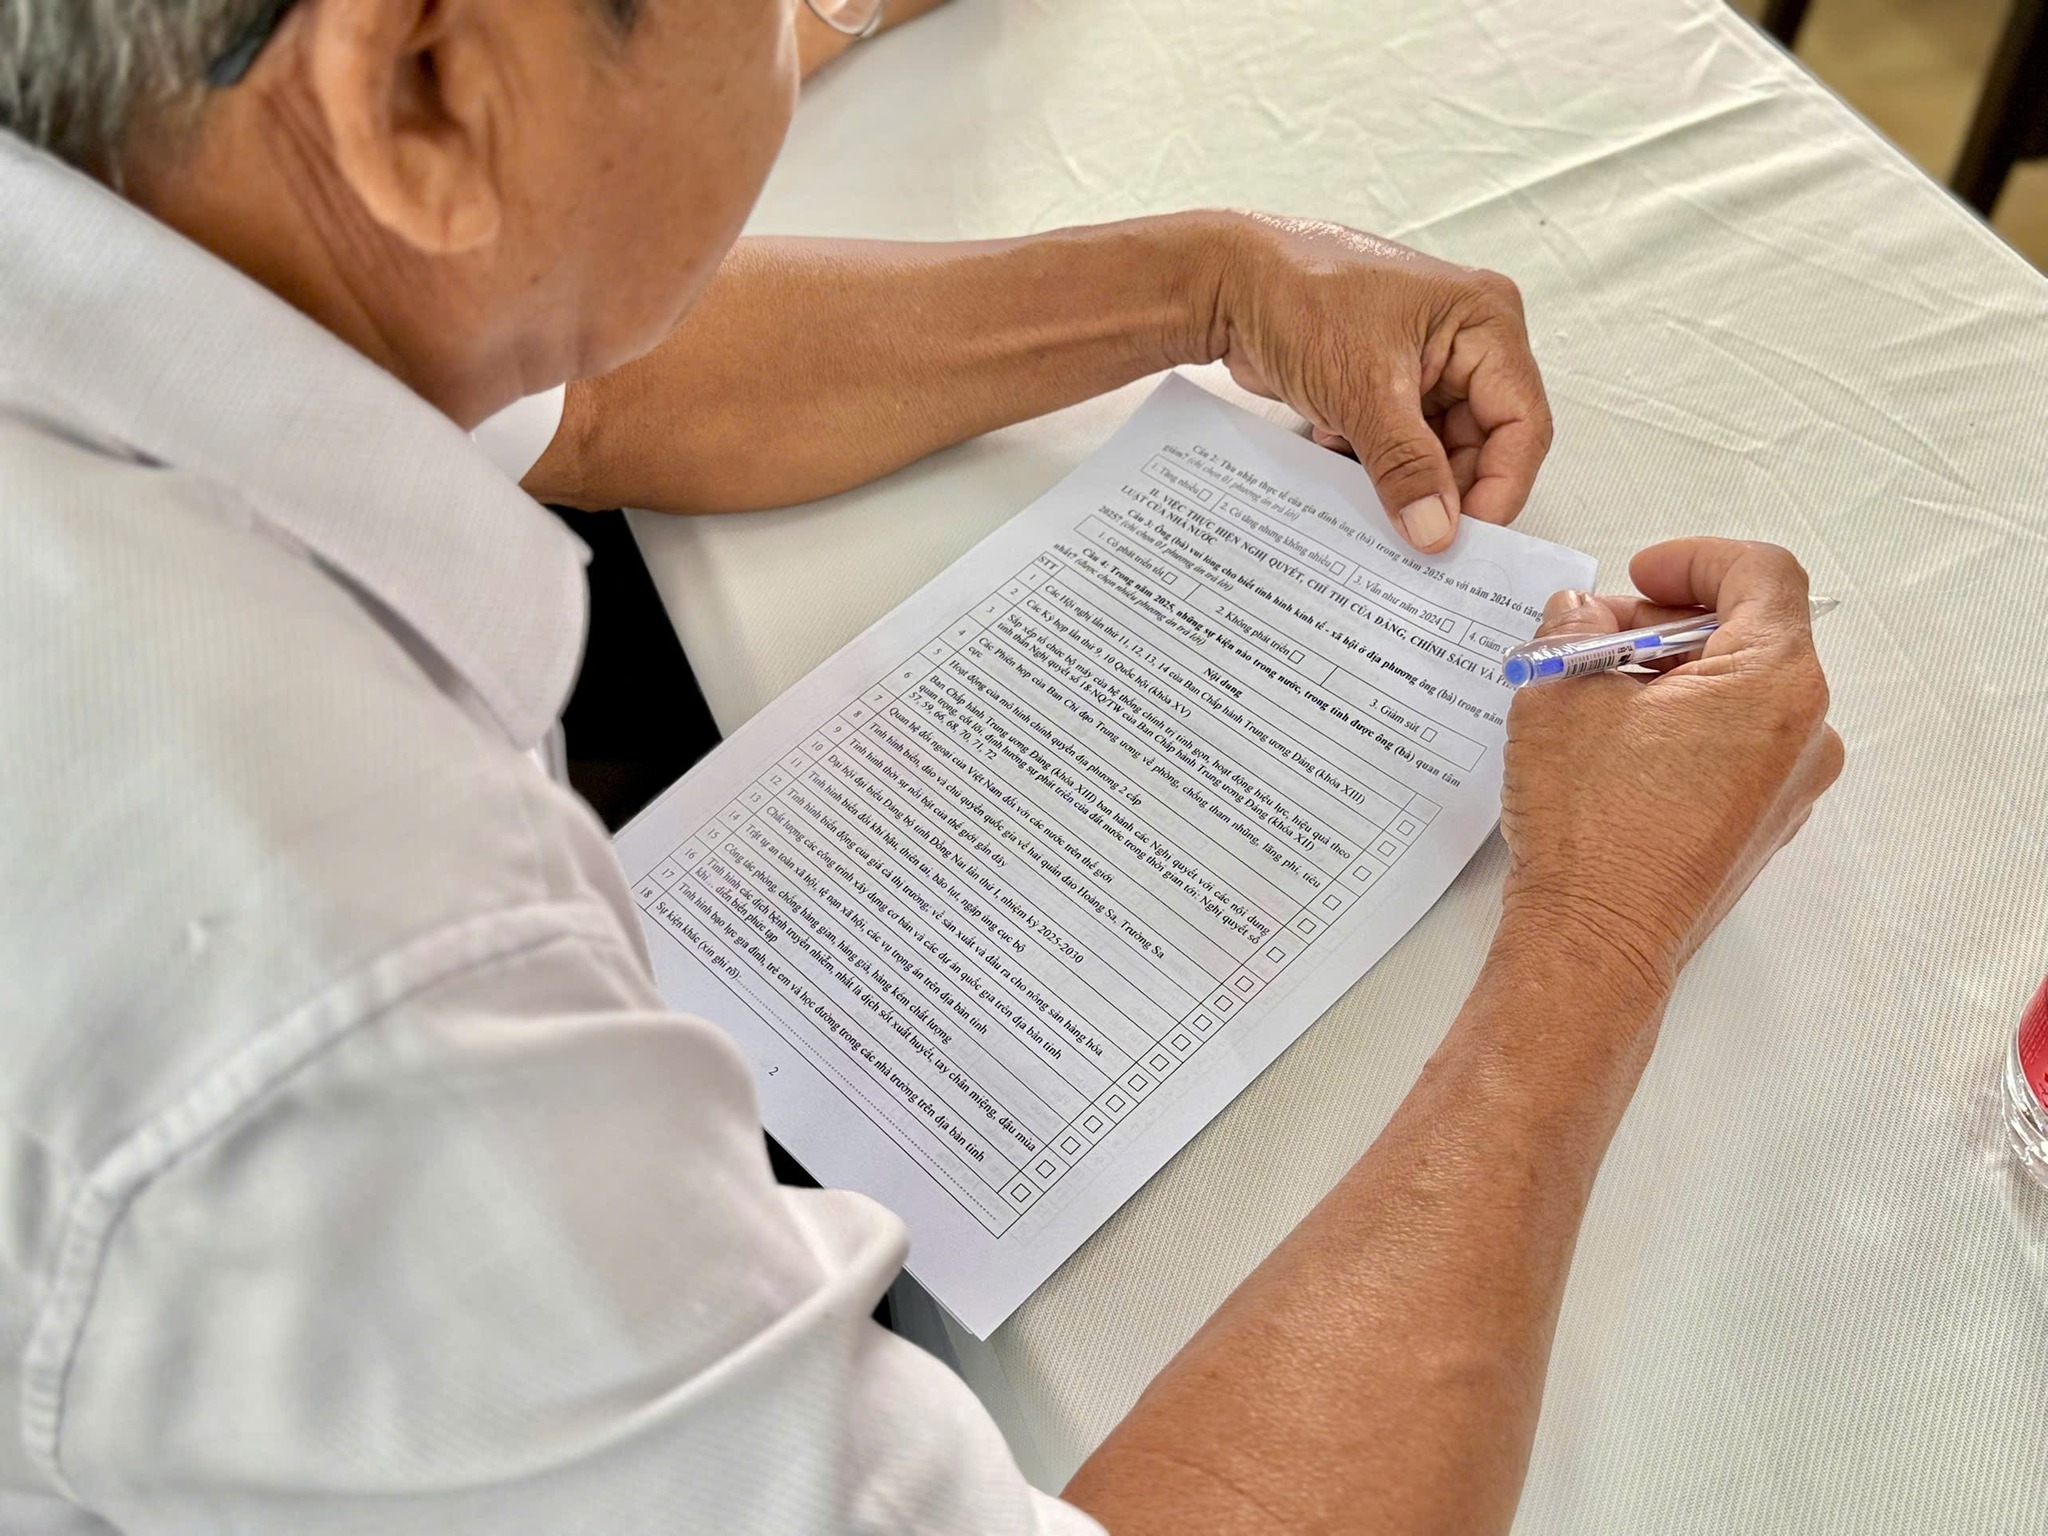 Câu 2: Thu nhập thực tế của gia đình ông (bà) trong năm 2025 so với năm 2024 có tăng
giảm? (chỉ chọn 01 phương án trả lời)
1. Tăng nhiều 2. Có tăng nhưng không nhiều 3. Vẫn như năm 2024 4. Giảm
II. VIỆC THỰC HIỆN NGHỊ QUYẾT, CHỈ THỊ CỦA ĐẢNG, CHÍNH SÁCH VÀ
LUẬT CỦA NHÀ NƯỚC
Câu 3: Ông (bà) vui lòng cho biết tình hình kinh tế - xã hội ở địa phương ông (bà) trong năm
2025? (chỉ chọn 01 phương án trả lời)
1. Có phát triển tốt 2. Không phát triển 3. Giảm sút
Câu 4: Trong năm 2025, những sự kiện nào trong nước, trong tỉnh được ông (bà) quan tâm
nhất? (được chọn nhiều phương án trả lời)
STT Nội dung
1 Các Hội nghị lần thứ 11, 12, 13, 14 của Ban Chấp hành Trung ương Đảng (khóa XIII)
2 Các Kỳ họp lần thứ 9, 10 Quốc hội (khóa XV)
3 Sắp xếp tổ chức bộ máy của hệ thống chính trị tinh gọn, hoạt động hiệu lực, hiệu quả theo
tinh thần Nghị quyết số 18-NQ/TW của Ban Chấp hành Trung ương Đảng (khóa XII)
4 Các Phiên họp của Ban Chỉ đạo Trung ương về phòng, chống tham nhũng, lãng phí, tiêu
cực
5 Hoạt động của mô hình chính quyền địa phương 2 cấp
6 Ban Chấp hành Trung ương Đảng (khóa XIII) ban hành các Nghị quyết với các nội dung
quan trọng, cốt lõi, định hướng sự phát triển của đất nước trong thời gian tới: Nghị quyết số
57, 59, 66, 68, 70, 71, 72
7 Quan hệ đối ngoại của Việt Nam đối với các nước trên thế giới
8 Tình hình biển, đảo và chủ quyền quốc gia về hai quần đảo Hoàng Sa, Trường Sa
9 Tình hình thời sự nổi bật của thế giới gần đây
10 Đại hội đại biểu Đảng bộ tỉnh Đồng Nai lần thứ I, nhiệm kỳ 2025-2030
11 Tình hình biến đổi khí hậu, thiên tai, bão lụt, ngập úng cục bộ
12 Tình hình biến động của giá cả thị trường; về sản xuất và đầu ra cho nông sản hàng hóa
13 Chất lượng các công trình xây dựng cơ bản và các dự án quốc gia trên địa bàn tỉnh
14 Trật tự an toàn xã hội, tệ nạn xã hội, các vụ trọng án trên địa bàn tỉnh
15 Công tác phòng, chống hàng gian, hàng giả, hàng kém chất lượng
16 Tình hình các dịch bệnh truyền nhiễm, nhất là dịch sốt xuất huyết, tay chân miệng, đậu mùa
khỉ... diễn biến phức tạp
17 Tình hình bạo lực gia đình, trẻ em và học đường trong các nhà trường trên địa bàn tỉnh
18 Sự kiện khác (xin ghi rõ):
2